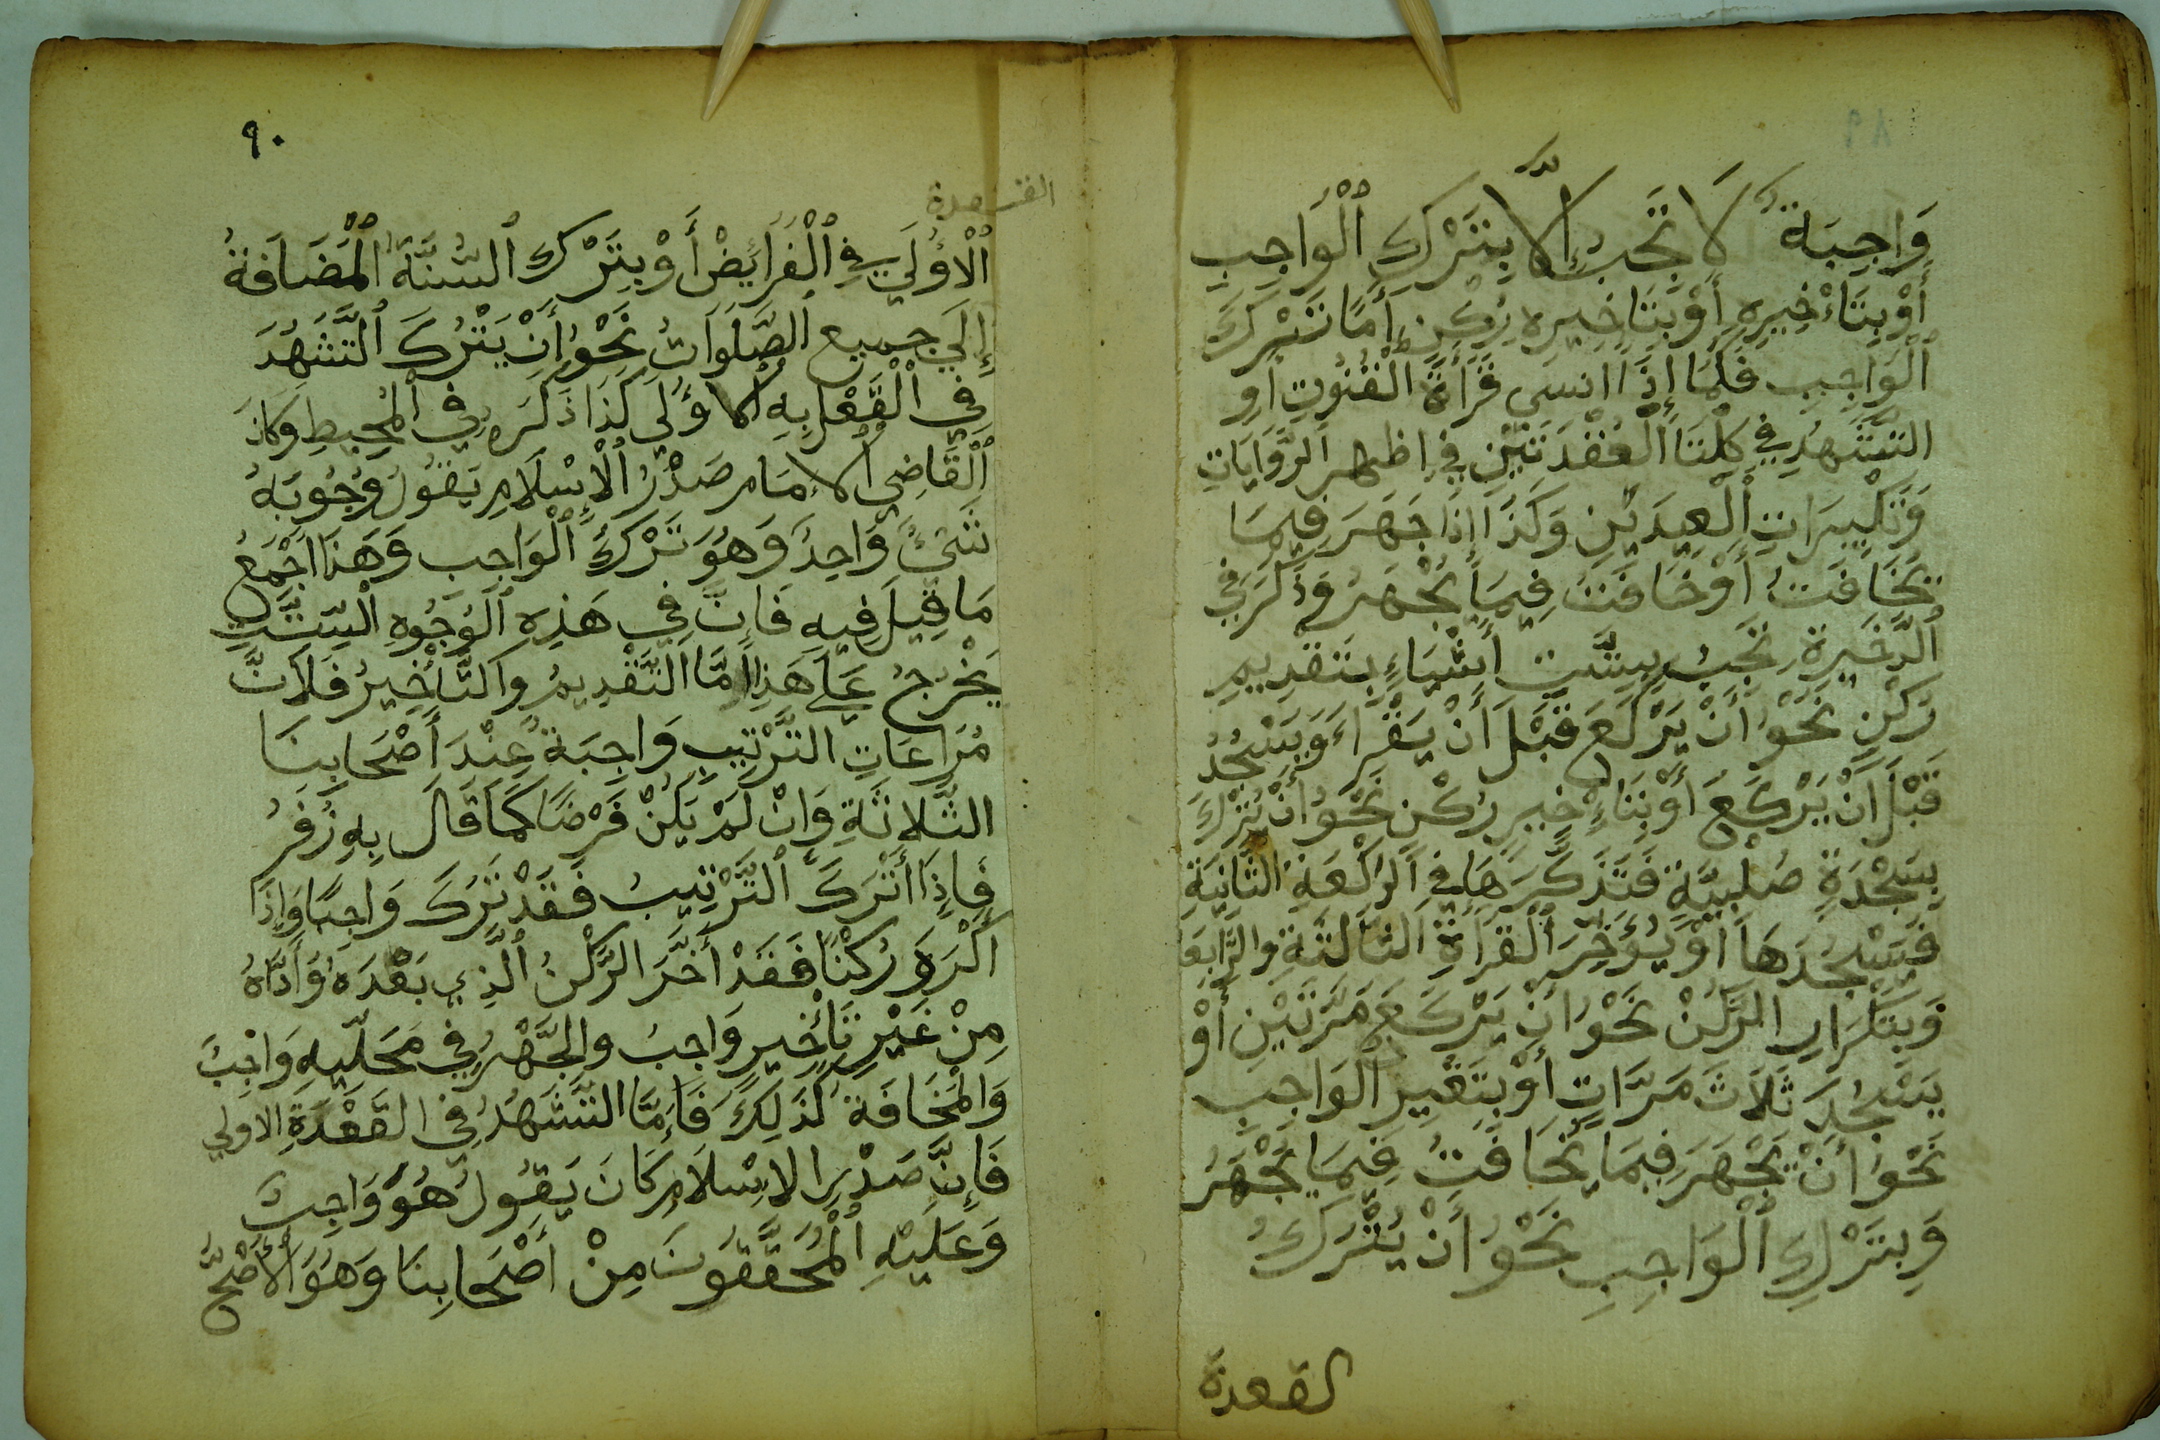 ٨٩
وَاجِبَة لَا تَجَبُ إِلاَّ بِتَرْكِ ٱلْوَاجِبِ
أَوْ بِتَاءْخِيرِهِ أَوْ بِتَاخِيرِهِ رُكْنٍ أَمَّا تَرْكَ
ٱلْوَاجِبِ فَلَمَا إِذَا انسَى قَرَأَةَ الْقُنُوتِ اَوِ
التشَهُدِ فِي كِلْتَا الْعُقْدَتَيْنِ فِي اِظهر الرَّوَايَاتِ
وَتَكْبِيرَاتِ الْعِيدَيْنِ وَكَذَا إِذَا جَهَرَ فِيمَا
يُخَافَتُ أَوْ خَافَتَ فِيمَا يُجْهَرُ وَذَكَرَ فِي
ٱلذَّخَيرَةِ تَجَبُ بِسِتَّتِ أَشْيَاءٍ بِتَقْدِيمِ
رُكْنٍ نَحْوُ أَنْ يَرْكَعَ قَبْلَ أَنْ يَقْرَاءَ وَيَسْجُدُ
قَبْلَ اَنْ يَرْكَعَ أَوْ بِتَاءْخِيرِ رُكْنٍ نَحْوُ أَنْ يَتْرُكَ
بِسَجْدَةٍ صُلْبِيَّةٍ فَتَذَكَّرَهَا فِي الرَّكْعَةِ الثَّانِيَةِ
فَيَسْجُدَهَا أَوْ يُؤَخِّرَ ٱلْقَرَأَةِ الثَّالثَةِ وَالرَّابِعَة
وَبِتَكْرَارِ الرُّكْنْ نَحْوُ انْ يَرْكَعَ مَرَّتَيْنِ أَوْ
يَسْجُدَ ثَلَاثَ مَرَّاتٍ أَوْ بِتَغْيِرِ الْوَاجِبِ
نَحْوُ أَنْ يَجْهَرَ فِيمَا يُخَافَتُ فِيمَا يَجْهَرُ
وَبِتَرْكِ ٱلْوَاجِبِ نَحْوُ أَنْ يَتْرُكَ
القعدة
٩٠
ٱلْاُوْلَي فِي ٱلْفَرَائِضْ أَوْ بِتَرْكِ ٱلسُّنَّةَ ٱلْمُضَافَةُ
إِلَي جميع الصَّلَوَاتُ نَحْوُ أَنْ يَتْرُكَ ٱلتَّشَهُدَ
فِي الْقَعْدِيهِ الاوُلَي كَذَا ذَكَرَه فِي الْمُحِيطِ وَكَانَ
ٱلْقَاضِي الاِمَامر صَدْرُ ٱلْإِسْلَامِ يَقُولُ وُجُوبَهُ
شَئٌ وَاحِدٌ وَهُوَ تَرْكُ ٱلْوَاجِبَ وَهَذَا اجْمَعُ
مَا قِيلَ فِيهِ فَاِنَّ فِي هَذِهِ ٱلْوُجُوهِ السِّتَّتِ
يَخْرُجُ عَلَي هَذِا أَمَّا التَّقْدِيمُ وَالتَّأْخِيرُ فَلَانَّ
مُرَاعَاتِ التَّرْتِيبِ وَاجِبَةٌ عِنْدَ أَصْحَابِنَا
الثَّلَاثَةِ وَاِنْ لَمْ يَكُنْ فَرْضًا كَمَا قَالَ بِهِ زُفَرُ
فَإِذَا أَتْرَكَ ٱلتَّرْتِيبُ فَقَدْ تَرَكَ وَاجِبًا وَإِذَا
اَكْرَوَ رُكْنًا فَقَدْ أَخَّرَ الرُّكْنُ ٱلَّذِي بَعْدَهُ وَأَدَّاهُ
مِنْ غَيْرِ تَأْخِيرٍ وَاجِبُ وَالجَّهْرُ فِي مَحَلِّيهِ وَاجِبٌ
وَالْمُخَافَةُ كَذَلِكَ فَأَمَّا التَّشَهُّدُ فِي القَعْدَةِ الاولي
فَإِنَّ صَدْرِ الاِسْلَامِ كَانَ يَقُولُ هُوَ وَاجِبٌ
وَعَلَيْهِ ٱلْمُحَقَّقُونَ مِنْ أَصْحَابِنَا وَهُوَ الْأَصْحّ